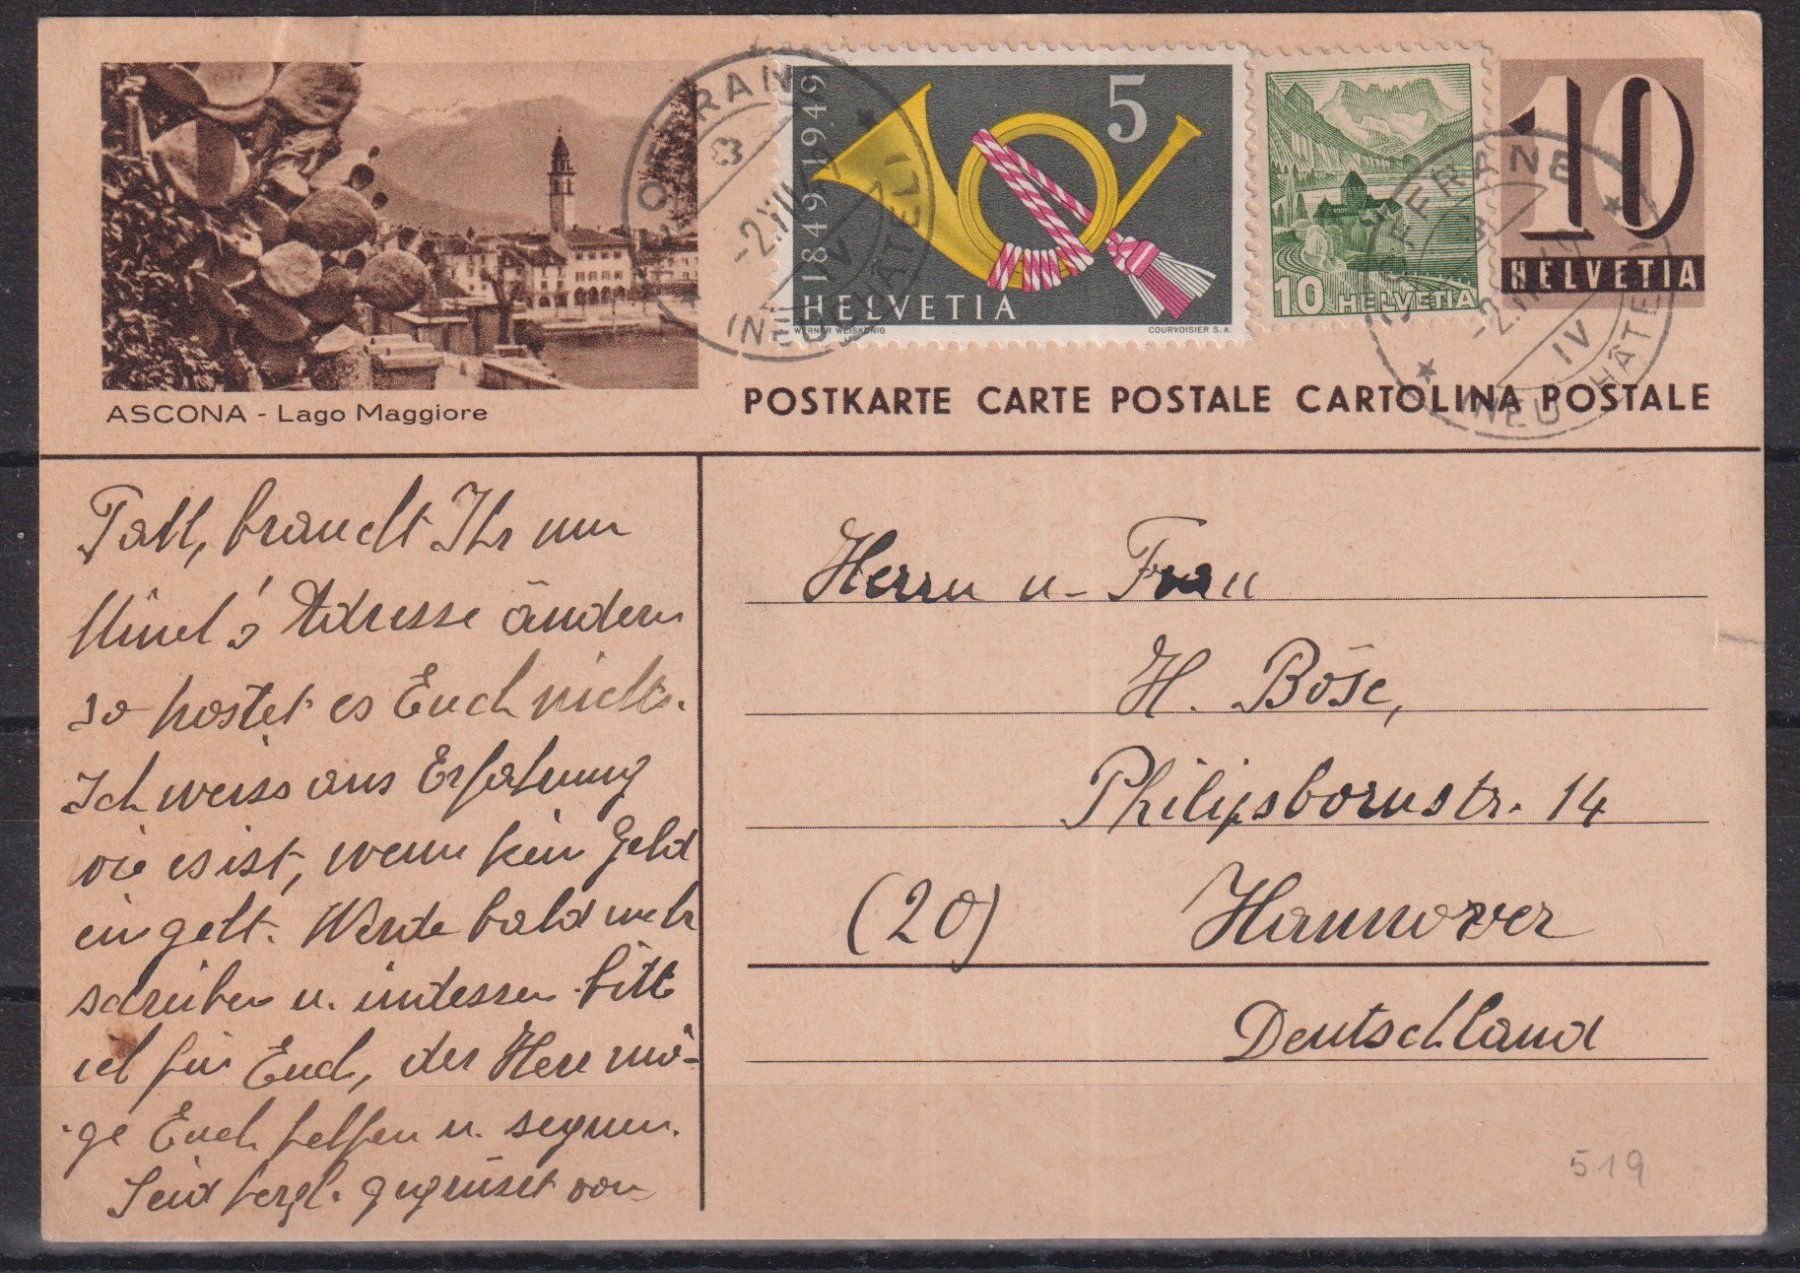 ASCONA - Lago Maggiore
1849-1949
5
HELVETIA
WERNER WEISKÖNIG
COURVOISIER S.A.
10 HELVETIA
10
HELVETIA
(NEUCHÂTEL)
IV
POSTKARTE CARTE POSTALE CARTOLINA POSTALE
Fall, braucht Ihr nur
Adresse ändern
so kostet es Euch nichts.
Ich weiss aus Erfahrung
wie es ist, wenn kein Geld
eingeht. Werde bald mehr
schreiben u. indessen bitte
ich für Euch, der Herr mö-
ge Euch helfen u. segnen.
Seid herzl. gegrüsst von
Herrn u. Frau
H. Böse,
Philipsbornstr. 14
(20) Hannover
Deutschland
519